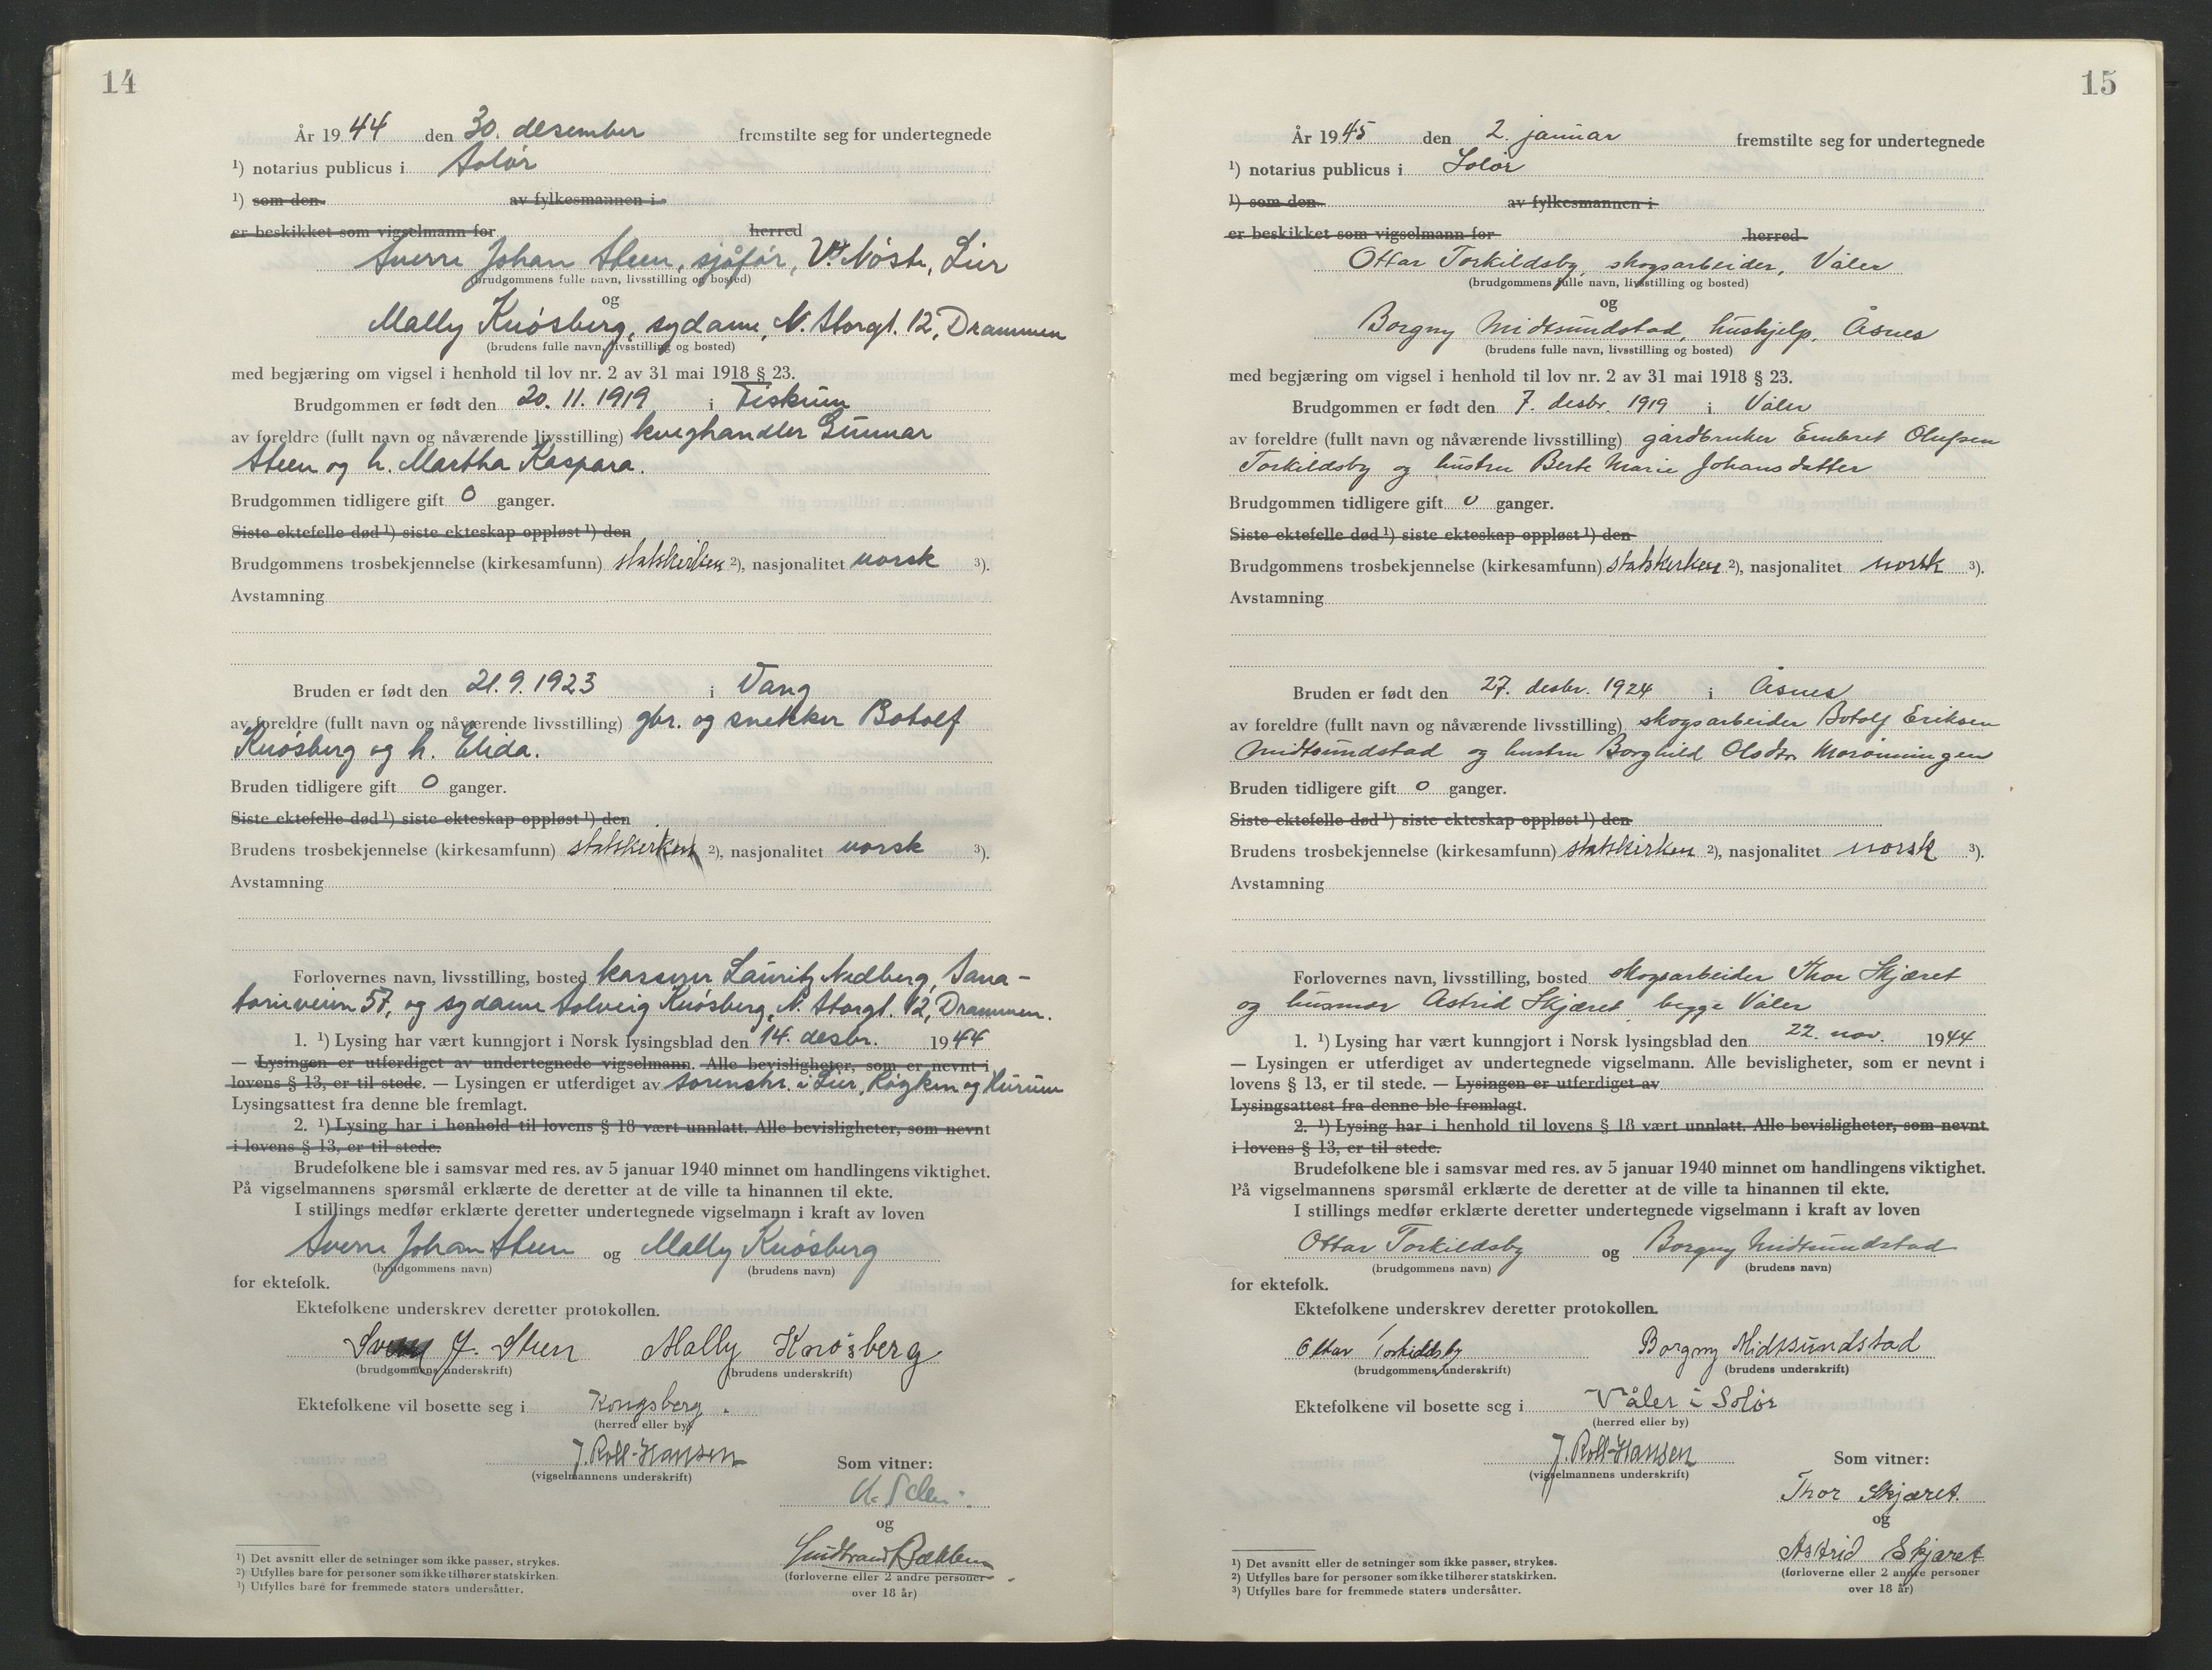 14
År 1944 den 30. desember fremstilte seg for undertegnede
¹) notarius publicus i Solør
¹) som den av fylkesmannen i
er beskikket som vigselmann for herred
Sverre Johan Steen, sjåfør, V. Nøste, Lier
(brudgommens fulle navn, livsstilling og bosted)
og
Mally Knøsberg, sydame, N. Storgt. 12, Drammen
(brudens fulle navn, livsstilling og bosted)
med begjæring om vigsel i henhold til lov nr. 2 av 31 mai 1918 § 23.
Brudgommen er født den 20. 11. 1919 i Fiskum
av foreldre (fullt navn og nåværende livsstilling) kveghandler Gunnar
Steen og h. Martha Kaspara.
Brudgommen tidligere gift 0 ganger.
Siste ektefelle død ¹) siste ekteskap oppløst ¹) den
Brudgommens trosbekjennelse (kirkesamfunn) statskirken ²), nasjonalitet norsk ³).
Avstamning
Bruden er født den 21. 9. 1923 i Vang
av foreldre (fullt navn og nåværende livsstilling) gbr. og snekker Botolf
Knøsberg og h. Elida.
Bruden tidligere gift 0 ganger.
Siste ektefelle død ¹) siste ekteskap oppløst ¹) den
Brudens trosbekjennelse (kirkesamfunn) statskirken ²), nasjonalitet norsk ³).
Avstamning
Forlovernes navn, livsstilling, bosted kasserer Lauritz Nedberg, Sana-
torieveien 57, og sydame Solveig Knøsberg, N. Storgt. 12, Drammen.
1. ¹) Lysing har vært kunngjort i Norsk lysingsblad den 14. desbr. 1944
— Lysingen er utferdiget av undertegnede vigselmann. Alle bevisligheter, som er nevnt i
lovens § 13, er til stede. — Lysingen er utferdiget av sorenskr. i Lier, Røyken og Hurum
Lysingsattest fra denne ble fremlagt.
2. ¹) Lysing har i henhold til lovens § 18 vært unnlatt. Alle bevisligheter, som nevnt
i lovens § 13, er til stede.
Brudefolkene ble i samsvar med res. av 5 januar 1940 minnet om handlingens viktighet.
På vigselmannens spørsmål erklærte de deretter at de ville ta hinannen til ekte.
I stillings medfør erklærte deretter undertegnede vigselmann i kraft av loven
Sverre Johan Steen og Mally Knøsberg
(brudgommens navn) (brudens navn)
for ektefolk.
Ektefolkene underskrev deretter protokollen.
J. Steen Mally Knøsberg
(brudgommens underskrift) (brudens underskrift)
Ektefolkene vil bosette seg i Kongsberg.
(herred eller by)
J. Roll-Hansen
(vigselmannens underskrift)
Som vitner:
og
Gudbrand Bækken
(forloverne eller 2 andre personer
over 18 år)
¹) Det avsnitt eller de setninger som ikke passer, strykes.
²) Utfylles bare for personer som ikke tilhører statskirken.
³) Utfylles bare for fremmede staters undersåtter.
15
År 1945 den 2. januar fremstilte seg for undertegnede
¹) notarius publicus i Solør
¹) som den av fylkesmannen i
er beskikket som vigselmann for herred
Ottar Torkildsby, skogsarbeider, Våler
(brudgommens fulle navn, livsstilling og bosted)
og
Borgny Midtsundstad, hushjelp, Åsnes
(brudens fulle navn, livsstilling og bosted)
med begjæring om vigsel i henhold til lov nr. 2 av 31 mai 1918 § 23.
Brudgommen er født den 7. desbr. 1919 i Våler
av foreldre (fullt navn og nåværende livsstilling) gårdbruker Embret Olufsen
Torkildsby og hustru Berte Marie Johansdatter
Brudgommen tidligere gift 0 ganger.
Siste ektefelle død ¹) siste ekteskap oppløst ¹) den
Brudgommens trosbekjennelse (kirkesamfunn) statskirken ²), nasjonalitet norsk ³).
Avstamning
Bruden er født den 27. desbr. 1924 i Åsnes
av foreldre (fullt navn og nåværende livsstilling) skogsarbeider Botolf Eriksen
Midtsundstad og hustru Borghild Olsdtr. Morønningen
Bruden tidligere gift 0 ganger.
Siste ektefelle død ¹) siste ekteskap oppløst ¹) den
Brudens trosbekjennelse (kirkesamfunn) statskirken ²), nasjonalitet norsk ³).
Avstamning
Forlovernes navn, livsstilling, bosted skogsarbeider Thor Skjæret
og husmor Astrid Skjæret, begge Våler
1. ¹) Lysing har vært kunngjort i Norsk lysingsblad den 22. nov. 1944
— Lysingen er utferdiget av undertegnede vigselmann. Alle bevisligheter, som er nevnt i
lovens § 13, er til stede. — Lysingen er utferdiget av
Lysingsattest fra denne ble fremlagt.
2. ¹) Lysing har i henhold til lovens § 18 vært unnlatt. Alle bevisligheter, som nevnt
i lovens § 13, er til stede.
Brudefolkene ble i samsvar med res. av 5 januar 1940 minnet om handlingens viktighet.
På vigselmannens spørsmål erklærte de deretter at de ville ta hinannen til ekte.
I stillings medfør erklærte deretter undertegnede vigselmann i kraft av loven
Ottar Torkildsby og Borgny Midtsundstad
(brudgommens navn) (brudens navn)
for ektefolk.
Ektefolkene underskrev deretter protokollen.
Ottar Torkildsby Borgny Midtsundstad
(brudgommens underskrift) (brudens underskrift)
Ektefolkene vil bosette seg i Våler i Solør
(herred eller by)
J. Roll-Hansen
(vigselmannens underskrift)
Som vitner:
Thor Skjæret.
og
Astrid Skjæret
(forloverne eller 2 andre personer
over 18 år)
¹) Det avsnitt eller de setninger som ikke passer, strykes.
²) Utfylles bare for personer som ikke tilhører statskirken.
³) Utfylles bare for fremmede staters undersåtter.